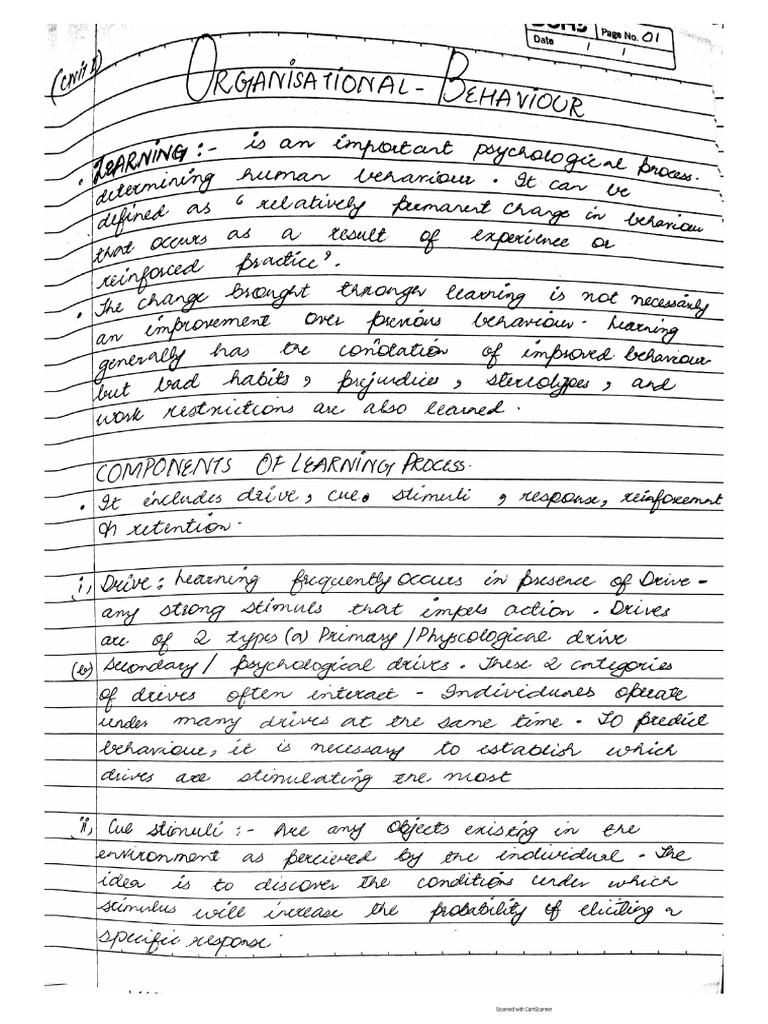 Page No. 01
Date / /
(Unit I)
ORGANISATIONAL - BEHAVIOUR
• LEARNING :- is an important psychological process.
determining human behaviour. It can be
defined as "relatively permanent change in behaviour
that occurs as a result of experience or
reinforced practice".
• The change brought through learning is not necessarily
an improvement over previous behaviour. Learning
generally has the connotation of improved behaviour
but bad habits, prejudices, stereotypes, and
work restrictions are also learned.
COMPONENTS OF LEARNING PROCESS.
• It includes drive, cue. stimuli, response, reinforcement
retention.
i, Drive: Learning frequently occurs in presence of Drive -
any strong stimuls that impels action. Drives
are of 2 types (a) Primary / Physcological drive
(b) Secondary / psychological drives. These 2 categories
of drives often interact - Individuals operate
under many drives at the same time. To predict
behaviour, it is necessary to establish which
drives are stimulating the most
ii, Cue stimuli :- Are any objects existing in the
environment as percieved by the individual. The
idea is to discover the conditions under which
stimulus will increase the probability of eliciting a
specific response.
Scanned with CamScanner